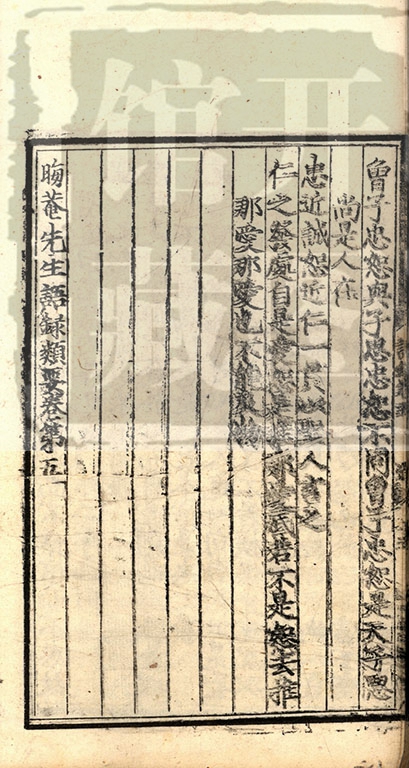 曾子忠恕與子思忠恕不同曾子忠恕是天子思
尚是人在
忠近誠恕近仁一貫以聖人言之
仁之發處自是愛恕是推那愛底若不是恕去推
那愛那愛也不能及物
晦菴先生語録類要卷第五